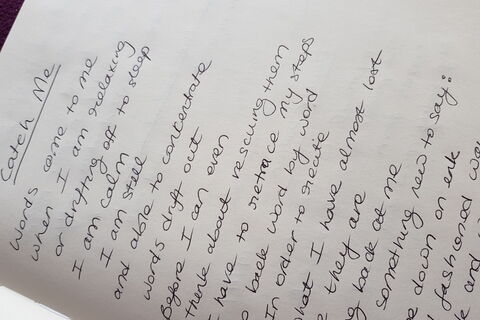 Catch Me
Words come to me
when I am relaxing
or drifting off to sleep
I am calm
I am still
and able to concentrate
Words drift out
Before I can even
think about rescuing them
have to retrace my steps
back word by word
In order to recreate
what I have almost lost
they are
back at me
something new to say:
down on ink
fashioned
and